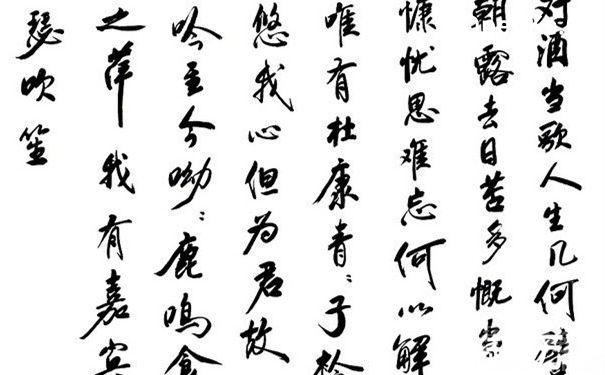 对酒当歌人生几何
朝露去日苦多慨当
慷忧思难忘何以解
唯有杜康青〻子衿
悠我心但为君故
吟至今呦〻鹿鸣食
之苹我有嘉宾
瑟吹笙